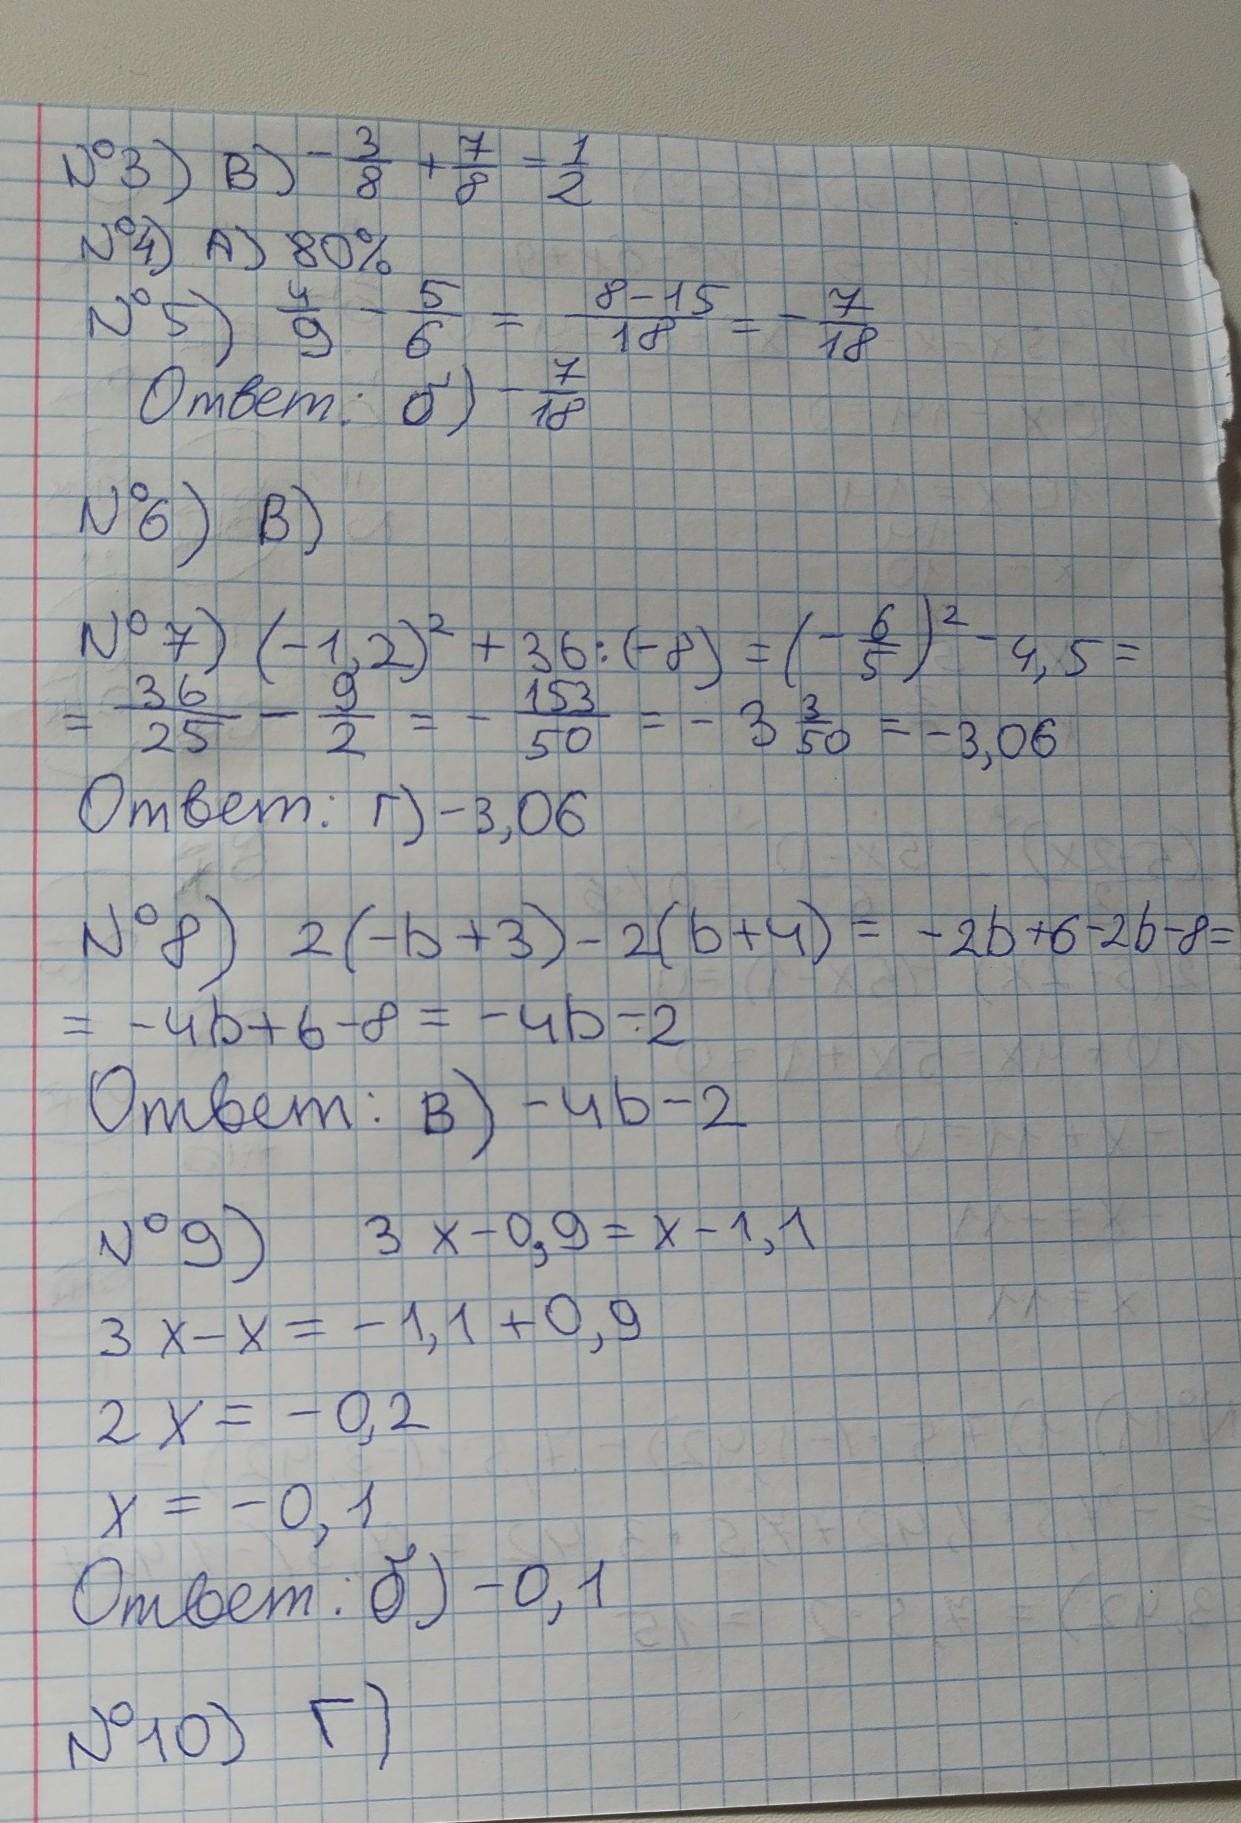 №3) В) -3/8 + 7/8 = 1/2
№4) А) 80%
№5) 4/9 - 5/6 = 8-15/18 = -7/18
Ответ: б) -7/18
№6) В)
№7) (-1,2)² + 36:(-8) = (-6/5)² - 4,5 =
= 36/25 - 9/2 = -153/50 = -3 3/50 = -3,06
Ответ: г) -3,06
№8) 2(-b+3)-2(b+4) = -2b+6-2b-8=
= -4b+6-8 = -4b-2
Ответ: В) -4b-2
№9) 3x-0,9=x-1,1
3x-x=-1,1+0,9
2x=-0,2
x=-0,1
Ответ: б) -0,1
№10) Г)